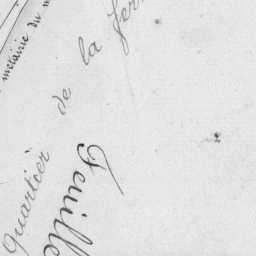 métairie du
Quartier de la
Feuille